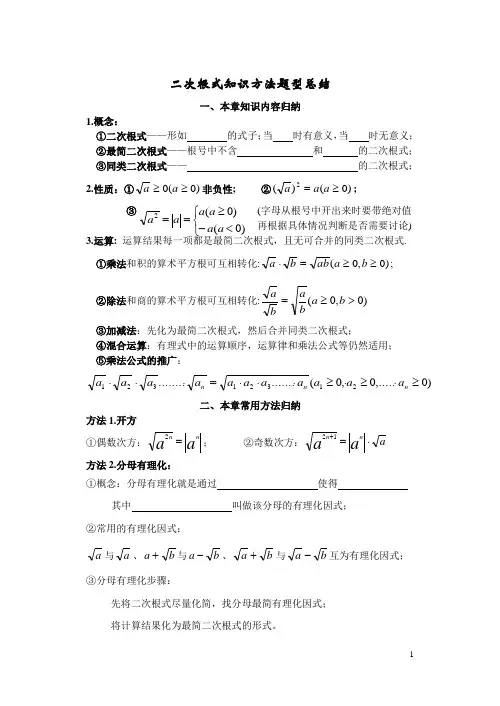 二次根式知识方法题型总结
一、本章知识内容归纳
1.概念：
①二次根式——形如 的式子；当 时有意义，当 时无意义；
②最简二次根式——根号中不含 和 的二次根式；
③同类二次根式—— 的二次根式；
2.性质：①√a ≥ 0(a ≥ 0) 非负性； ②(√a)² = a(a ≥ 0)；
③ √a² = |a| = { a(a ≥ 0) −a(a < 0) (字母从根号中开出来时要带绝对值再根据具体情况判断是否需要讨论)
3.运算：运算结果每一项都是最简二次根式，且无可合并的同类二次根式.
①乘法和积的算术平方根可互相转化：√a · √b = √ab(a ≥ 0, b ≥ 0)；
②除法和商的算术平方根可互相转化：√a/√b = √(a/b)(a ≥ 0, b > 0)
③加减法：先化为最简二次根式，然后合并同类二次根式；
④混合运算：有理式中的运算顺序，运算律和乘法公式等仍然适用；
⑤乘法公式的推广：
√a₁ · √a₂ · √a₃ ……· √aₙ = √(a₁ · a₂ · a₃ ……· aₙ) (a₁ ≥ 0, a₂ ≥ 0, …… aₙ ≥ 0)
二、本章常用方法归纳
方法 1.开方
①偶数次方：√a²ⁿ = |aⁿ|； ②奇数次方：√a²ⁿ⁺¹ = |aⁿ| · √a
方法 2.分母有理化：
①概念：分母有理化就是通过 使得
其中 叫做该分母的有理化因式；
②常用的有理化因式：
√a 与 √a 、a + √b 与 a − √b 、√a + √b 与 √a − √b 互为有理化因式；
③分母有理化步骤：
先将二次根式尽量化简，找分母最简有理化因式；
将计算结果化为最简二次根式的形式。
1